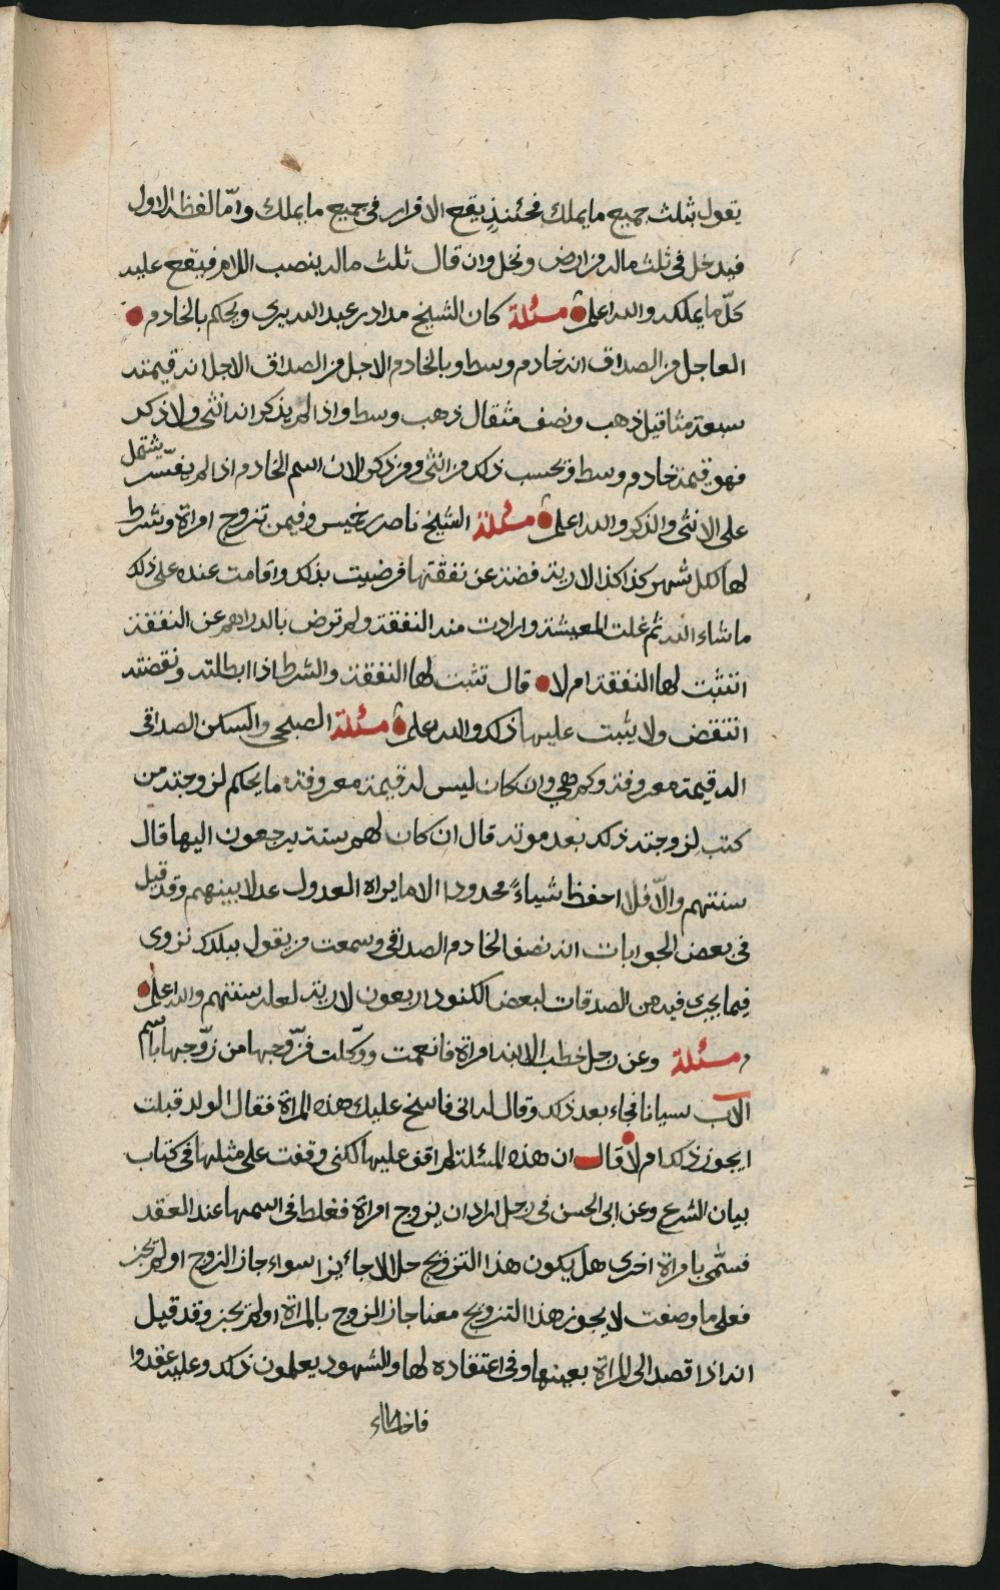 يقول بثلث جميع ما يملك فحئنذ يقع الاقرار في جميع ما يملك وامّا لفظه الاول
فيدخل في ثلث ماله من ارض ونخل وان قال ثلث ماله بنصب اللام فيقع عليه
كلّ ما يملكه والله اعلم مسئلة كان الشيخ مداد بن عبد الله يرى ويحكم بالخادم
العاجل من الصداق انه خادم وسط وبالخادم الاجل من الصداق الاجل انه قيمته
سبعة مثاقيل ذهب ونصف مثقال ذهب وسط واذا لم يذكر انه انثى ولا ذكر
فهو قيمة خادم وسط وتحسب ذلك من انثى ومن ذكر لان اسم الخادم اذا لم يفسّر يشتمل
على الانثى والذكر والله اعلم مسئلة الشيخ ناصر بن خميس وفيمن تزوج امراة وشرط
لها لكل شهر كذا كذا لارية فضة عن نفقتها فرضيت بذلك واقامت عنده على ذلك
ما شاء الله ثم غلت المعيشة وارادت منه النفقة ولم ترض بالدراهم عن النفقة
اتثبت لها النفقة ام لا قال تثبت لها النفقة والشرط اذا ابطلته ونقضته
انتقض ولا يثبت عليها ذلك والله اعلم مسئلة الصبحي والسكن الصداقي
اله قيمة معروفة وكم هي وان كان ليس له قيمة معروفة ما يحكم لزوجته من
كتب لزوجته ذلك بعد موته قال ان كان لهم سنة يرجعون اليها قال
سنتهم والّا فلا احفظ شياءً محدودا الا ما يراه العدول عدلا بينهم وقد قيل
في بعض الجوابات انه نصف الخادم الصداقي وسمعت من يقول ببلدك نزوى
فيما يجرى فيه من الصدقات لبعض الكنود اربعون لارية لعله سنتهم والله اعلم
مسئلة وعن رجل خطب لابنه امراة فانعمت ووكّلت فزّوجها من زوّجها باسم
الاب نسيانا فجاء بعد ذلك وقال له انى فاسخ عليك هذه المراة فقال الولد قبلت
ايجوز ذلك ام لا قال ان هذه المسئلة لم اقف عليها لكنى وقفت على مثلها في كتاب
بيان الشرع وعن ابى الحسن في رجل اراد ان يزوج امراة فغلط في اسمها عند العقد
فسمّى بامراة اخرى هل يكون هذا التزويج حلالا جائزا سواء جاز الزوج او لم يجز
فعلى ما وصفت لا يجوز هذا التزويج معنا جاز الزوج بالمراة او لم يجز وقد قيل
انه اذا قصد الى المراة بعينها وفى اعتقاده لها والشهود يعلمون ذلك وعليه عقدوا
فاخطاء